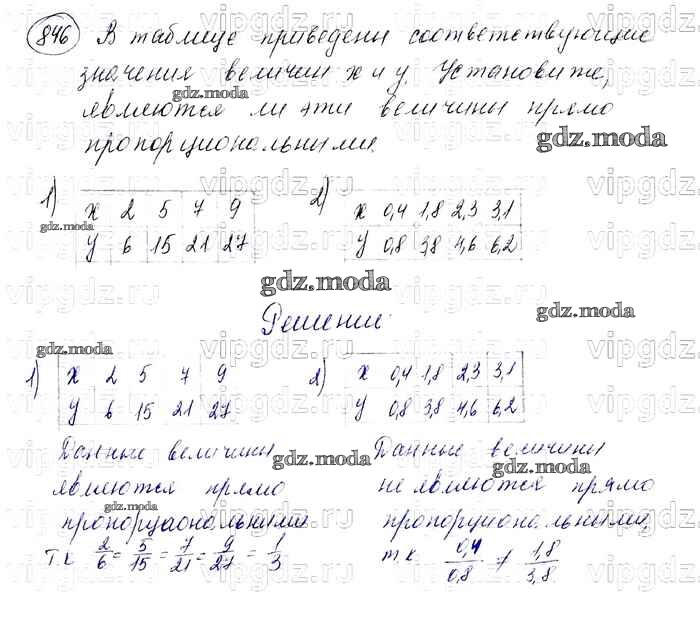 846 В таблице приведены соответствующие
значения величин x и y. Установите,
являются ли эти величины прямо
пропорциональными.
1) x 2 5 7 9
y 6 15 21 27
2) x 0,4 1,8 2,3 3,1
y 0,8 3,8 4,6 6,2
Решение:
1) x 2 5 7 9
y 6 15 21 27
Данные величины
являются прямо
пропорциональными
т.к 2/6 = 5/15 = 7/21 = 9/27 = 1/3
2) x 0,4 1,8 2,3 3,1
y 0,8 3,8 4,6 6,2
Данные величины
не являются прямо
пропорциональными,
т.к. 0,4/0,8 ≠ 1,8/3,8
gdz.moda
vipgdz.ru